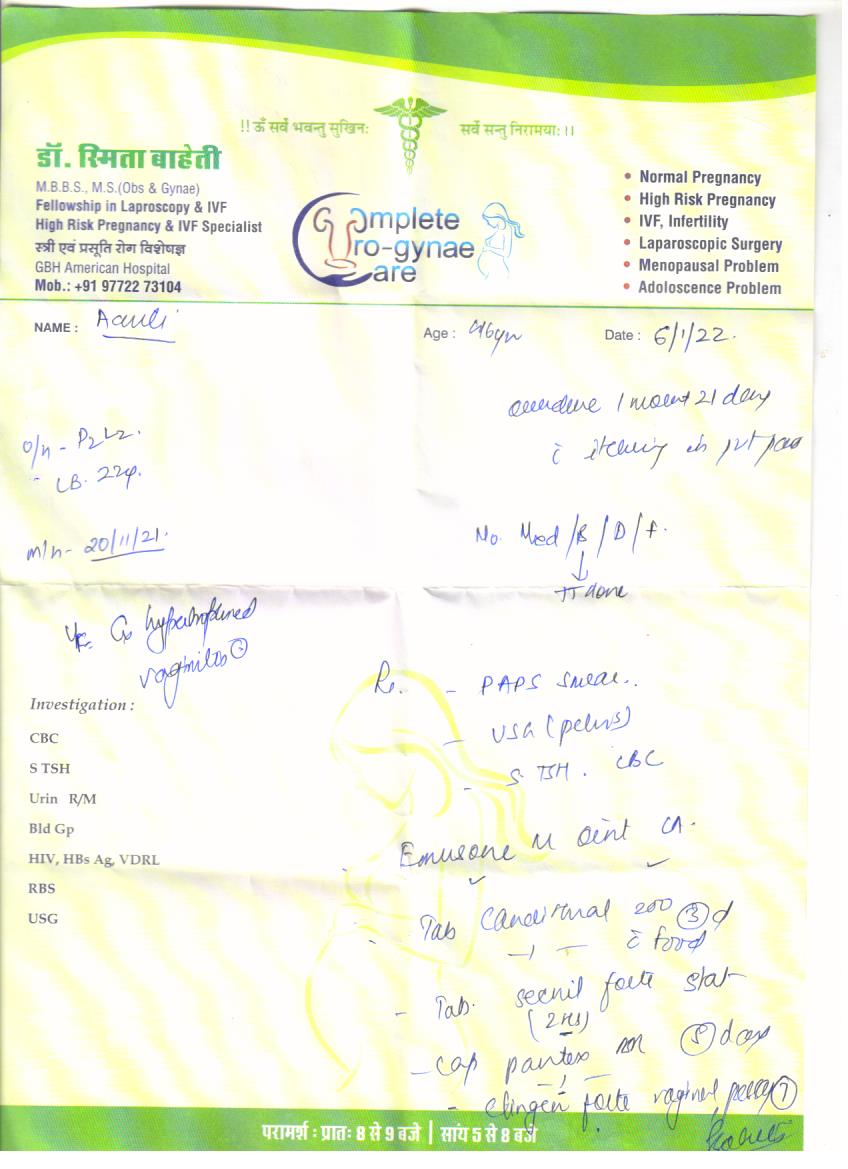 !! ॐ सर्वे भवन्तु सुखिनः सर्वे सन्तु निरामयाः !!
डॉ. स्मिता बाहेती
M.B.B.S., M.S.(Obs & Gynae)
Fellowship in Laproscopy & IVF
High Risk Pregnancy & IVF Specialist
स्त्री एवं प्रसूति रोग विशेषज्ञ
GBH American Hospital
Mob.: +91 97722 73104
Complete
Uro-gynae
Care
• Normal Pregnancy
• High Risk Pregnancy
• IVF, Infertility
• Laparoscopic Surgery
• Menopausal Problem
• Adoloscence Problem
NAME :
Age : 46yr
Date : 6/1/22.
1 month 21 days
itching in pvt part
O/H - P2L2.
LB. 22y.
M/H- 20/11/21.
No. Med /B /D /F.
TT done
Cx hypertrophied
vaginitis
Investigation :
CBC
S TSH
Urin R/M
Bld Gp
HIV, HBs Ag, VDRL
RBS
USG
Rx. - PAPS smear..
- USG (pelvis)
- S. TSH. CBC
M Oint LA.
- Tab 200 3 d
c food
- Tab. secnil forte stat
- Cap 5 days
- Clingen forte vaginal 7
परामर्श : प्रातः 8 से 9 बजे | सांय 5 से 8 बजे